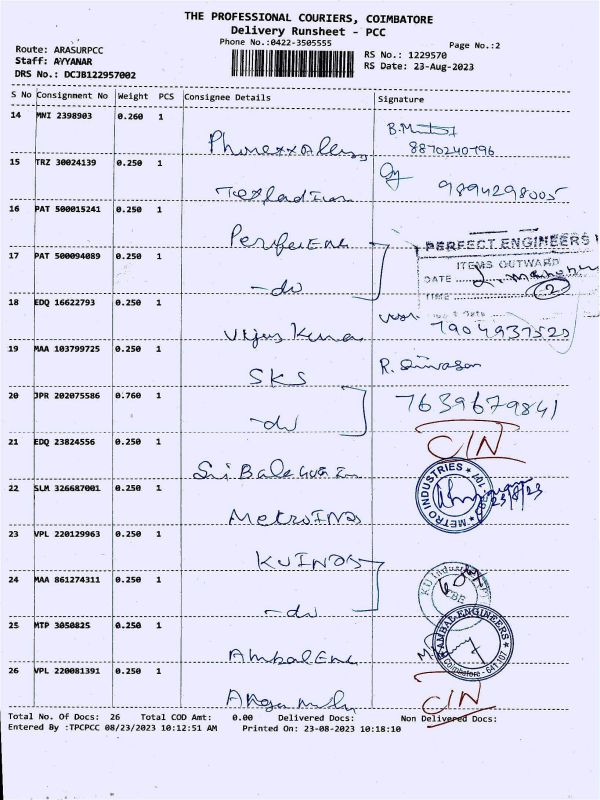 THE PROFESSIONAL COURIERS, COIMBATORE
Delivery Runsheet - PCC
Phone No.:0422-3505555
Page No.:2
Route: ARASURPCC
Staff: AYYANAR
DRS No.: DCJB122957002
RS No.: 1229570
RS Date: 23-Aug-2023
S No Consignment No Weight PCS Consignee Details Signature
14 MNI 2398903 0.260 1
8870240796
15 TRZ 30024139 0.250 1
9894298005
16 PAT 500015241 0.250 1
PERFECT ENGINEERS
ITEMS OUTWARD
DATE
TIME
2
17 PAT 500094089 0.250 1
-do
18 EDQ 16622793 0.250 1
7904937520
19 MAA 103799725 0.250 1
SKS
R. Srinivasan
20 JPR 202075586 0.760 1
-do
7639679841
21 EDQ 23824556 0.250 1
CIN
22 SLM 326687001 0.250 1
Metro INDS
METRO INDUSTRIES
23/8/23
23 VPL 220129963 0.250 1
KU INDS
24 MAA 861274311 0.250 1
-do
KU Industries
CBE
25 MTP 3050825 0.250 1
Ambal Eng
AMBAL ENGINEERS
Coimbatore - 641 107
26 VPL 220081391 0.250 1
CIN
Total No. Of Docs: 26 Total COD Amt: 0.00 Delivered Docs: Non Delivered Docs:
Entered By :TPCPCC 08/23/2023 10:12:51 AM Printed On: 23-08-2023 10:18:10